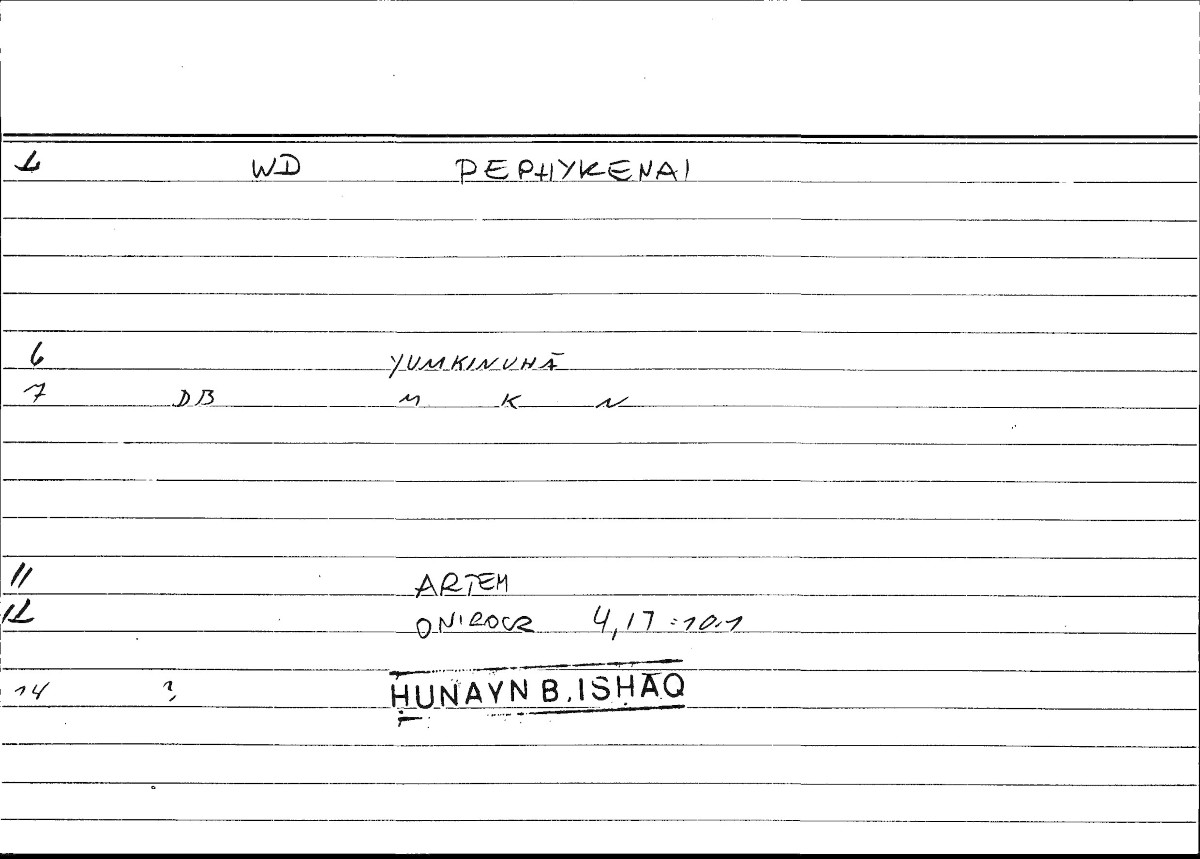 1 WD PEPHYKENAI
6 YUMKINUHĀ
7 DB M K N
11 ARTEM
12 ONIROCR 4,17:10.1
14 ? HUNAYN B. ISḤĀQ